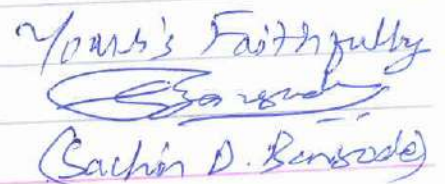 Yours's Faithfully
(Sachin D. Bansode)